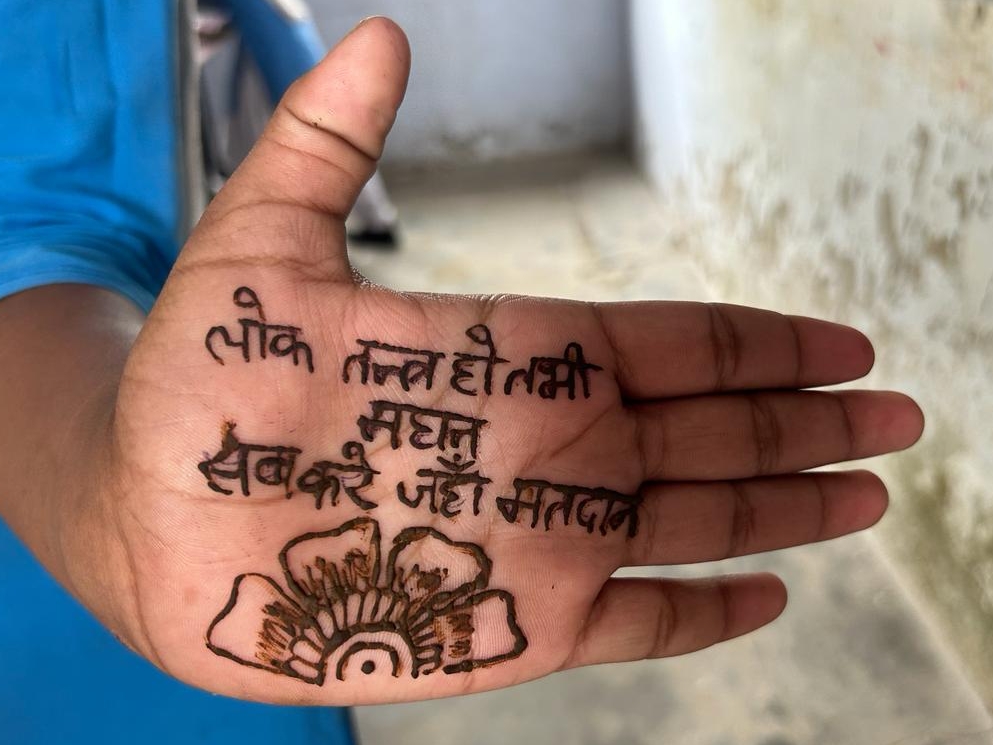 लोक तन्त्र हो तभी
मघन
सब करे जहाँ मतदान